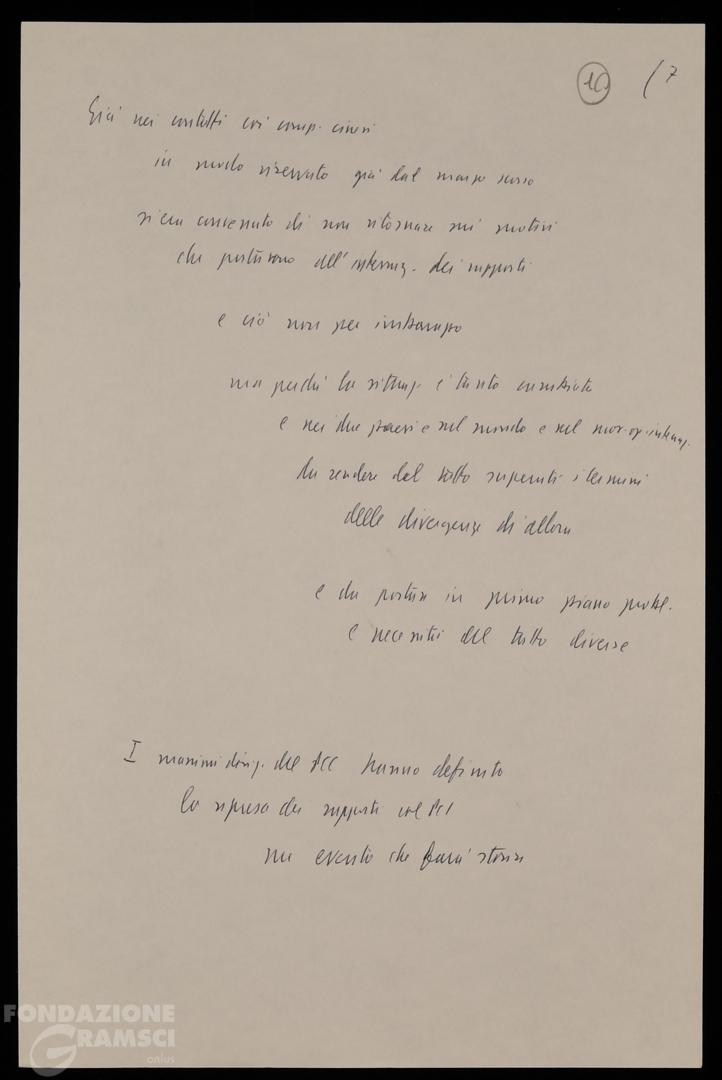 10 (7
Già nei contatti coi comp. cinesi
in modo riservato già dal marzo scorso
si era convenuto di non ritornare sui motivi
che portarono all'interruz. dei rapporti
e ciò non per imbarazzo
ma perché la situaz. è tanto cambiata
e nei due paesi e nel mondo e nel mov. op. internaz.
da rendere del tutto superati i termini
delle divergenze di allora
e da portare in primo piano probl.
e necessità del tutto diverse
I massimi dirig. del PCC hanno definito
la ripresa dei rapporti col PCI
un evento che farà storia
FONDAZIONE
GRAMSCI
onlus